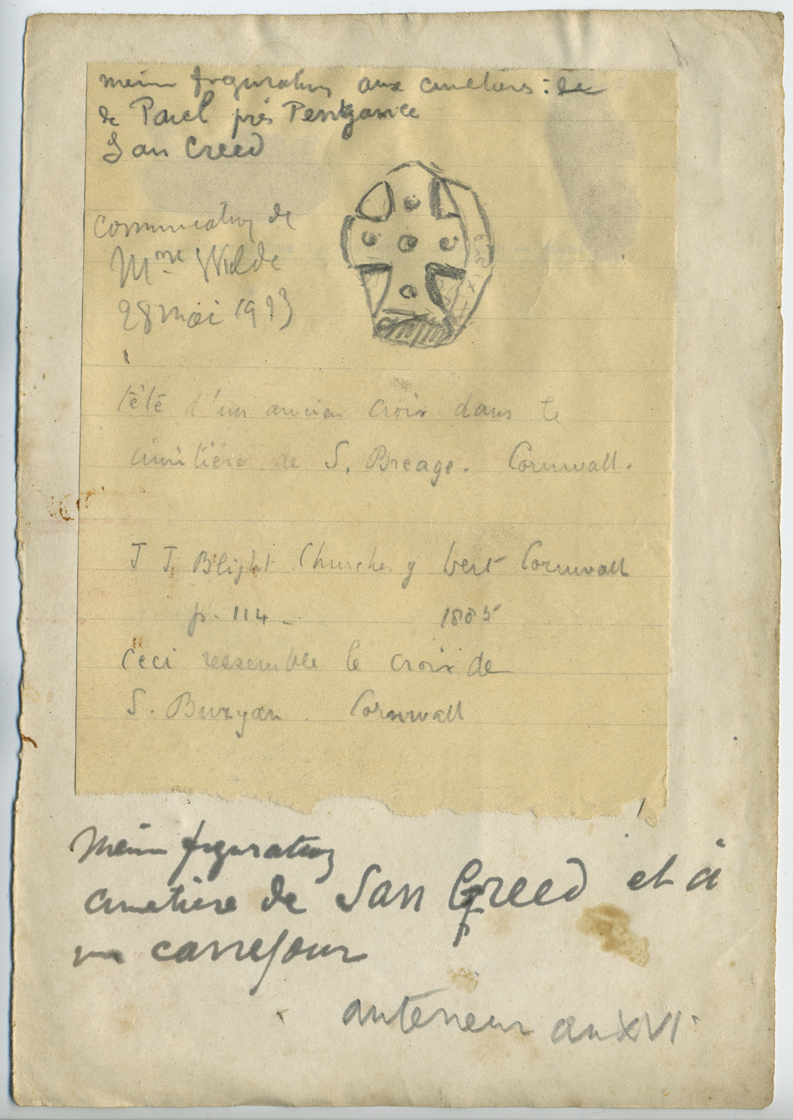 même figuration aux cimetières : de
de Paul près Penzance
San Creed
Communication de
Mme Wilde
28 mai 1913
tété d'un ancien croix dans le
cimitière de S. Breage. Cornwall.
J J, Blight Churches of West Cornwall
p. 114 - 1885
Ceci ressemble le croix de
S. Buryan Cornwall
Même figuration
cimetière de San Creed et à
un carrefour
antérieur au XVIe